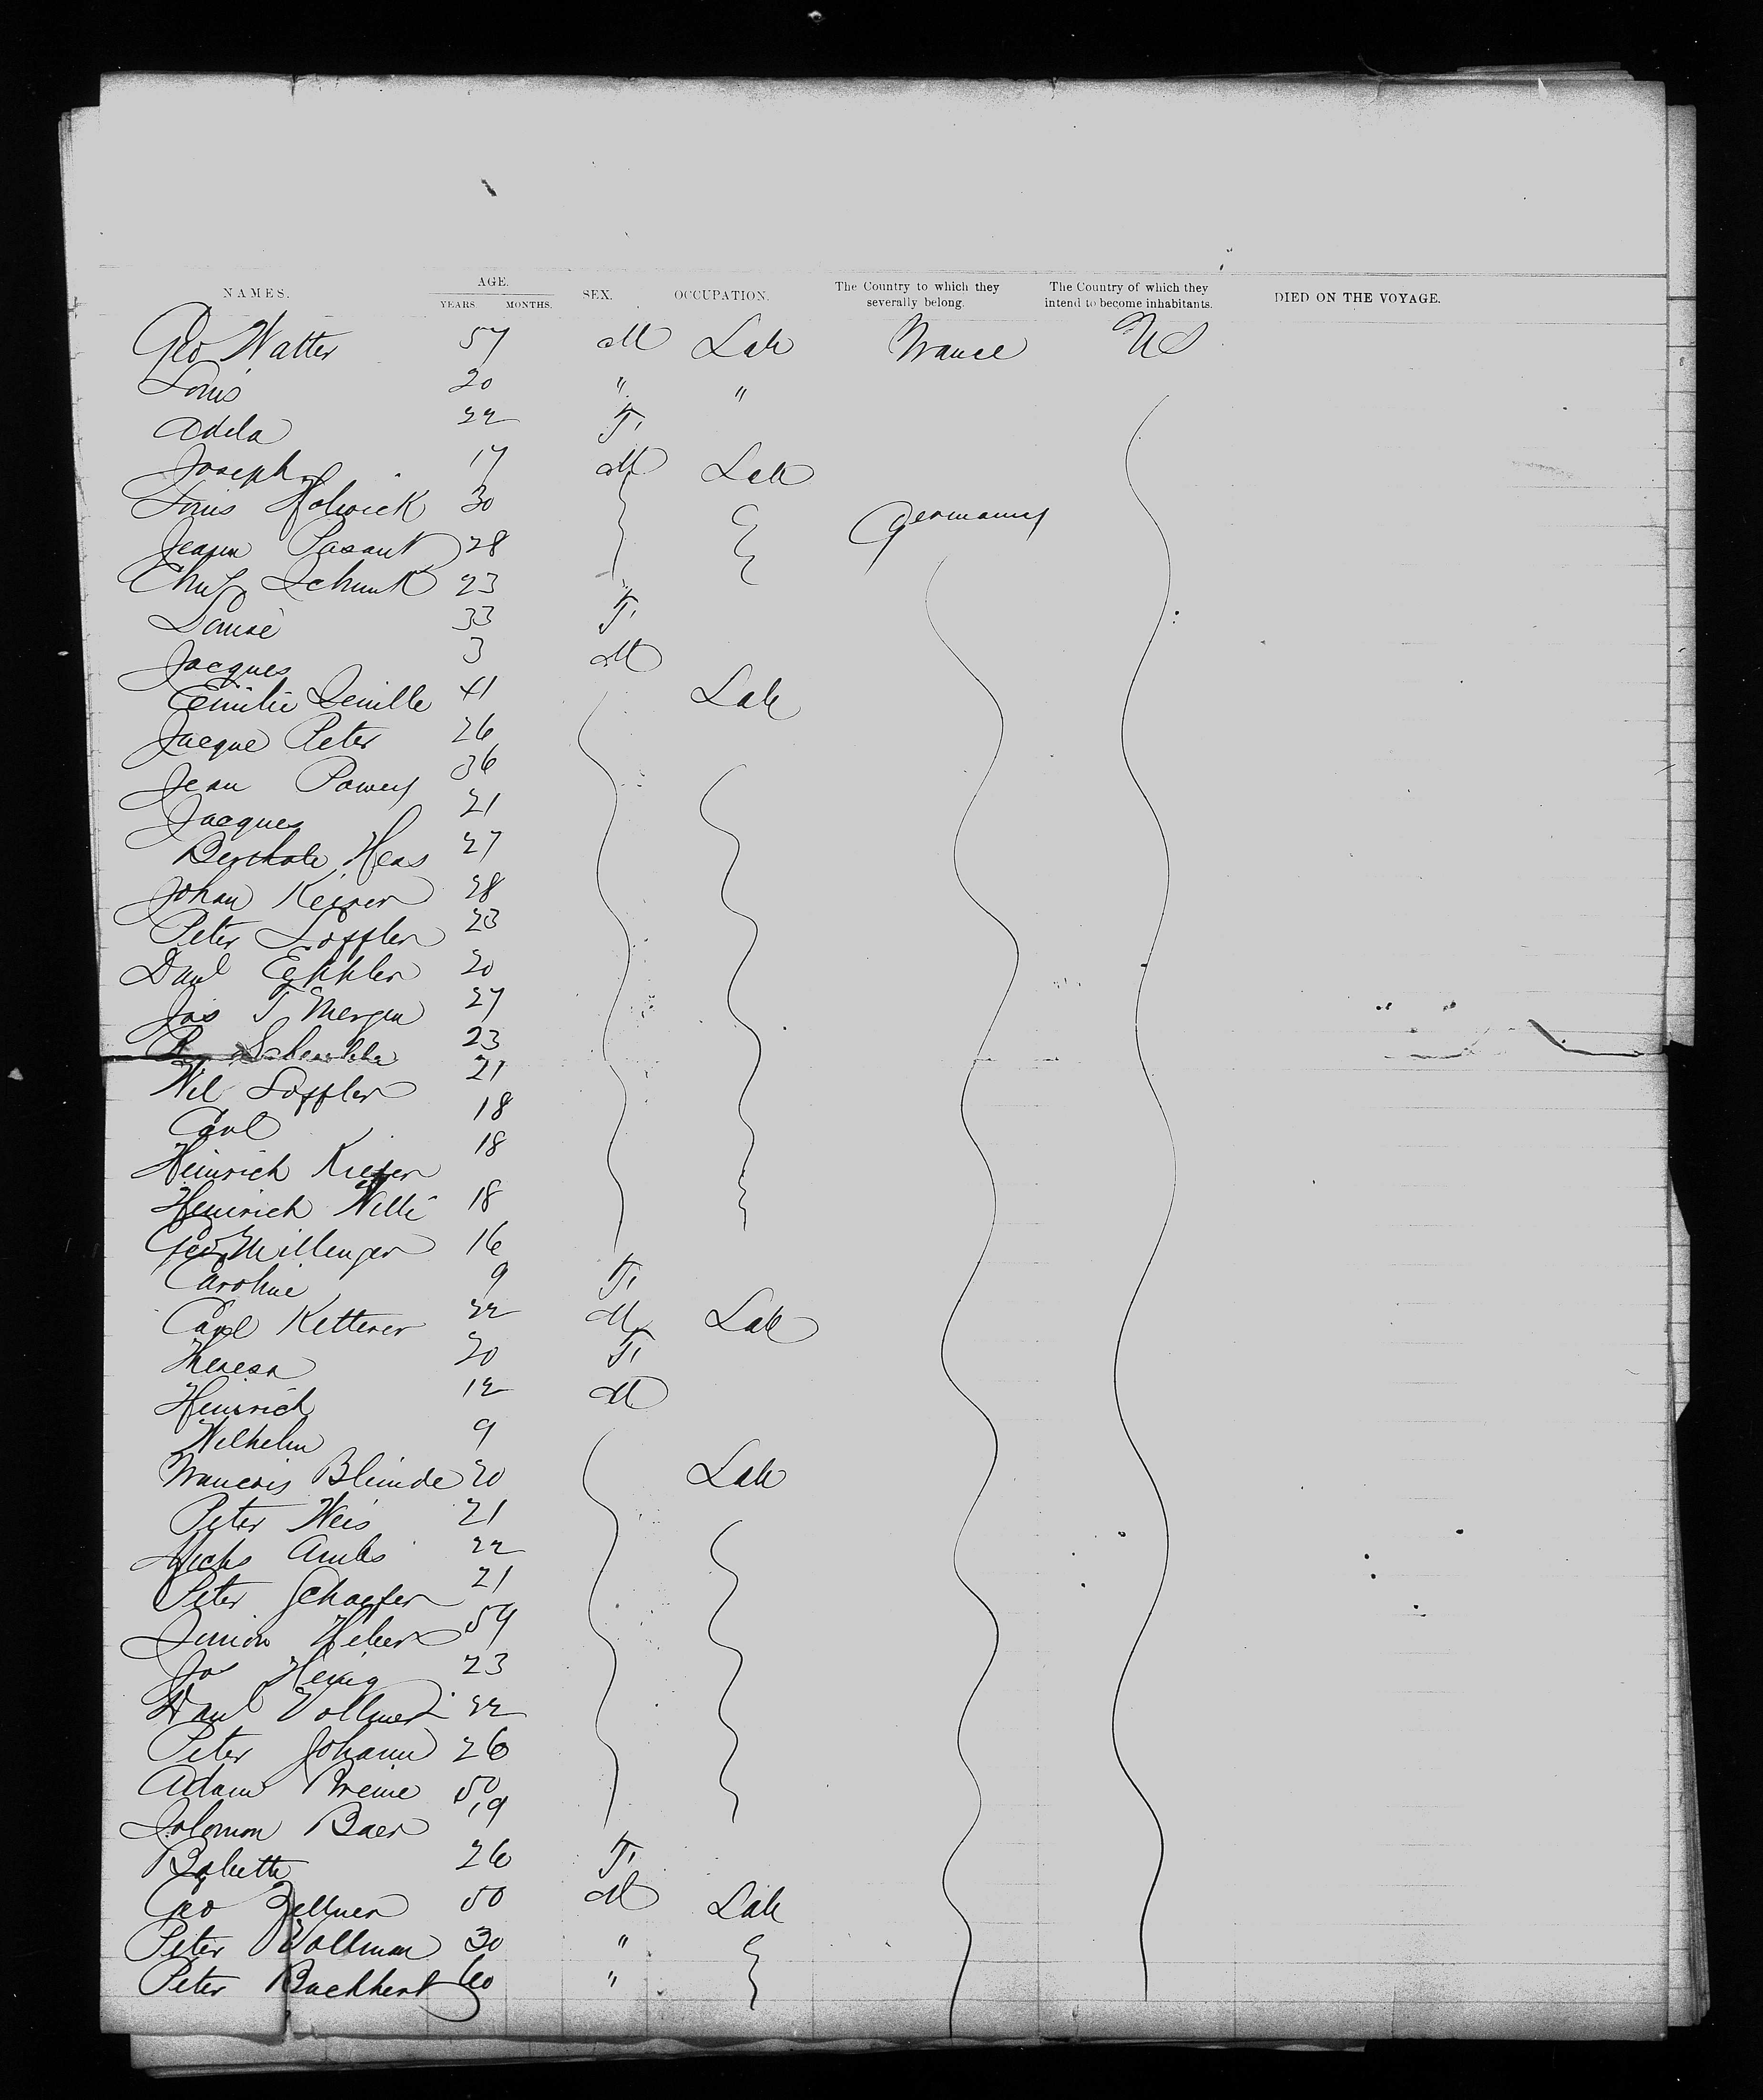 NAMES. AGE. SEX. OCCUPATION. The Country to which they severally belong. The Country of which they intend to become inhabitants. DIED ON THE VOYAGE.
YEARS. MONTHS.
Geo Watter 57 M Lab France US
Louis 20 " "
Adela 22 F
Joseph 17 M Lab
Louis Holweck 30 Germany
Jeann Pasant 28
Schunk 23
Louise 33 F
Jacques 3 M
Emilie Seville 41 Lab
Jacque Peter 26
Jean Powey 36
Jacques 21
Berthole Heas 27
Johan Keiser 28
Peter Loffler 23
Danl 20
Jos T Mergen 27
23
Wil Loffler 21
Carl 18
Heinrich Kiefer 18
Heinrich Willi 18
Geo Millenger 16
Caroline 9 F
Carl Ketterer 22 M Lab
Theresa 20 F
Heinrich 12 M
Wilhelm 9
Francois Blimde 20 Lab
Peter Weis 21
Nichs Ambs 22
Peter Schaefer 21
Simon Weber 59
Jos Heinig 23
Danl Vollmer 22
Peter Johann 26
Adam Preine 50
Solomon Baer 19
Babette 26 F
Geo Zellner 50 M Lab
Peter Wollman 30 "
Peter Buckhert 60 "